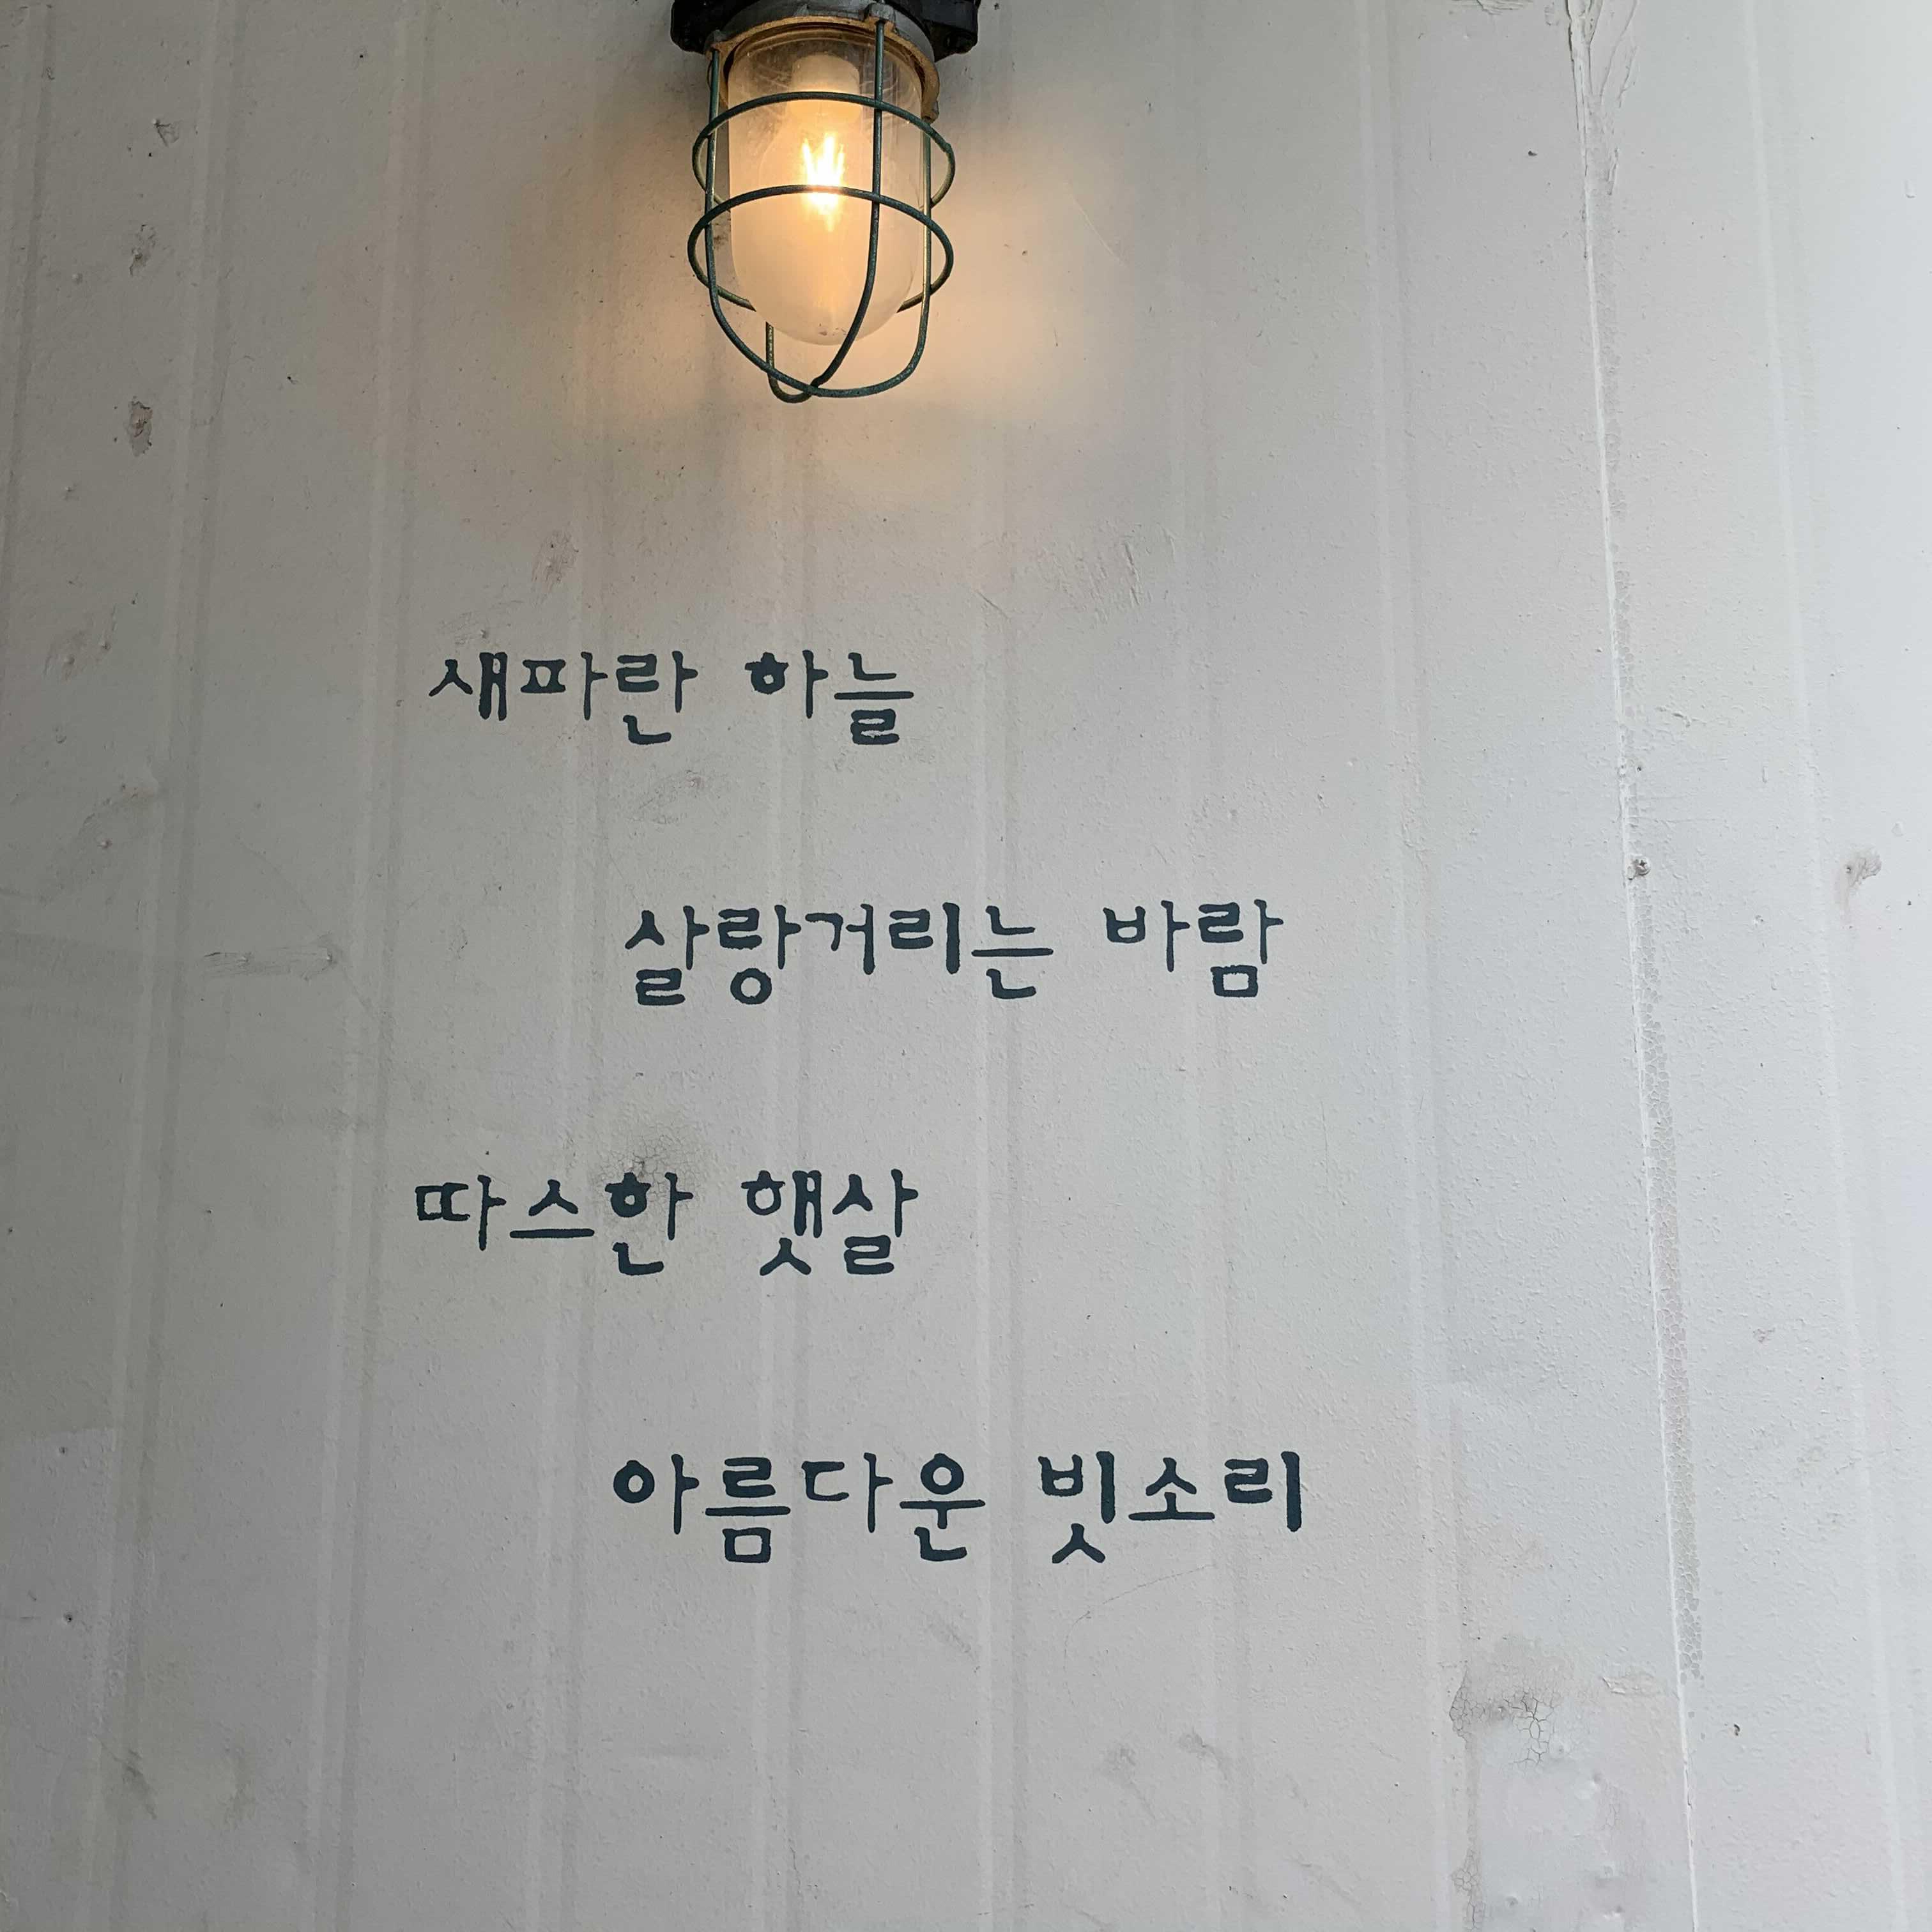 새파란 하늘
살랑거리는 바람
따스한 햇살
아름다운 빗소리